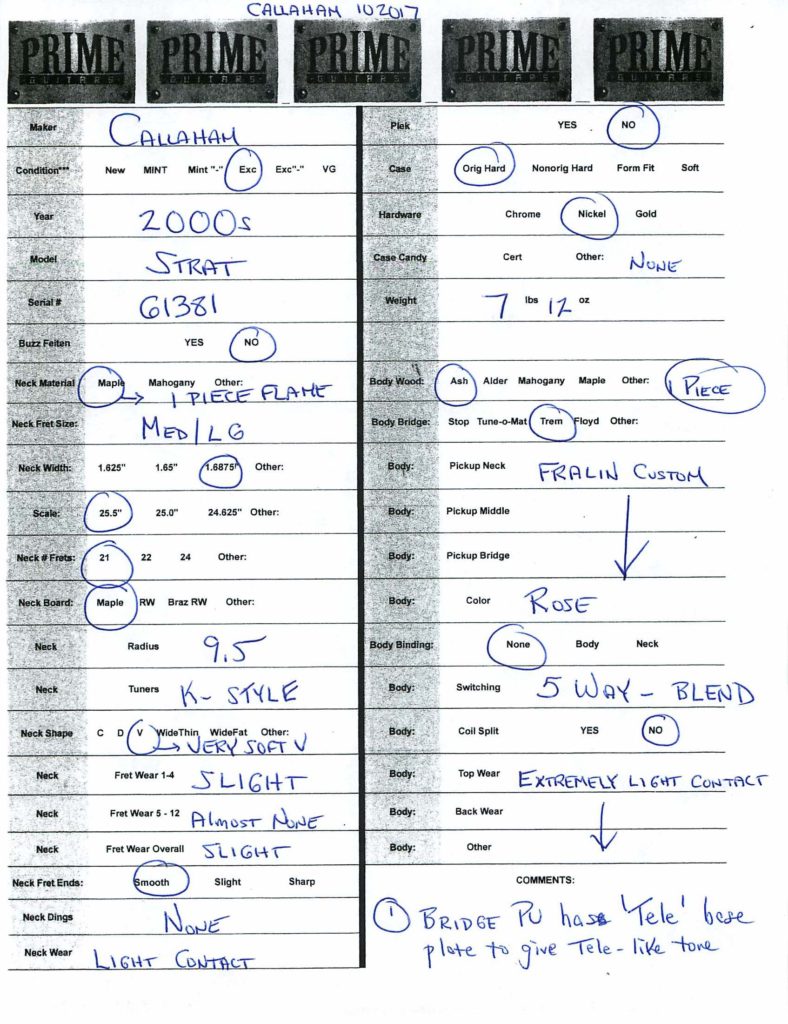 CALLAHAM 102017
PRIME PRIME PRIME PRIME PRIME
GUITARS GUITARS GUITARS GUITARS GUITARS
Maker CALLAHAM
Condition*** New MINT Mint "-" Exc Exc"-" VG
Year 2000s
Model STRAT
Serial # 61381
Buzz Feiten YES NO
Neck Material Maple Mahogany Other:
→ 1 PIECE FLAME
Neck Fret Size: MED/LG
Neck Width: 1.625" 1.65" 1.6875" Other:
Scale: 25.5" 25.0" 24.625" Other:
Neck # Frets: 21 22 24 Other:
Neck Board: Maple RW Braz RW Other:
Neck Radius 9.5
Neck Tuners K-STYLE
Neck Shape C D V WideThin WideFat Other:
→ VERY SOFT V
Neck Fret Wear 1-4 SLIGHT
Neck Fret Wear 5 - 12 Almost NONE
Neck Fret Wear Overall SLIGHT
Neck Fret Ends: Smooth Slight Sharp
Neck Dings NONE
Neck Wear LIGHT CONTACT
Plek YES NO
Case Orig Hard Nonorig Hard Form Fit Soft
Hardware Chrome Nickel Gold
Case Candy Cert Other: NONE
Weight 7 lbs 12 oz
Body Wood: Ash Alder Mahogany Maple Other: 1 PIECE
Body Bridge: Stop Tune-o-Mat Trem Floyd Other:
Body: Pickup Neck FRALIN CUSTOM
Body: Pickup Middle
Body: Pickup Bridge
Body: Color ROSE
Body Binding: None Body Neck
Body: Switching 5 WAY - BLEND
Body: Coil Split YES NO
Body: Top Wear EXTREMELY LIGHT CONTACT
Body: Back Wear
Body: Other
COMMENTS:
① BRIDGE PU has 'Tele' base
plate to give Tele-like tone